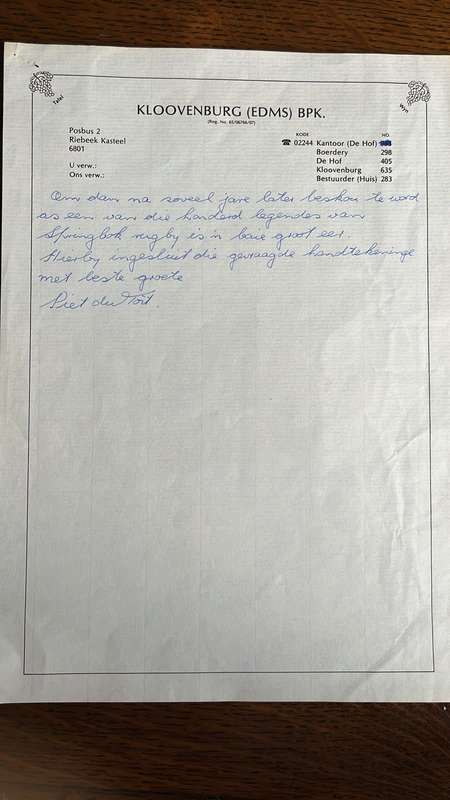 Tafel
Wyn
KLOOVENBURG (EDMS) BPK.
(Reg. No. 65/06766/07)
Posbus 2
Riebeek Kasteel
6801
U verw.:
Ons verw.:
KODE NO.
☎ 02244 Kantoor (De Hof)
Boerdery 298
De Hof 405
Kloovenburg 635
Bestuurder (Huis) 283
Om dan na soveel jare later beskou te word
as een van die honderd legendes van
Springbok rugby is 'n baie groot eer.
Hierby ingesluit die gevraagde handtekeninge
met beste groete
Piet du Toit.